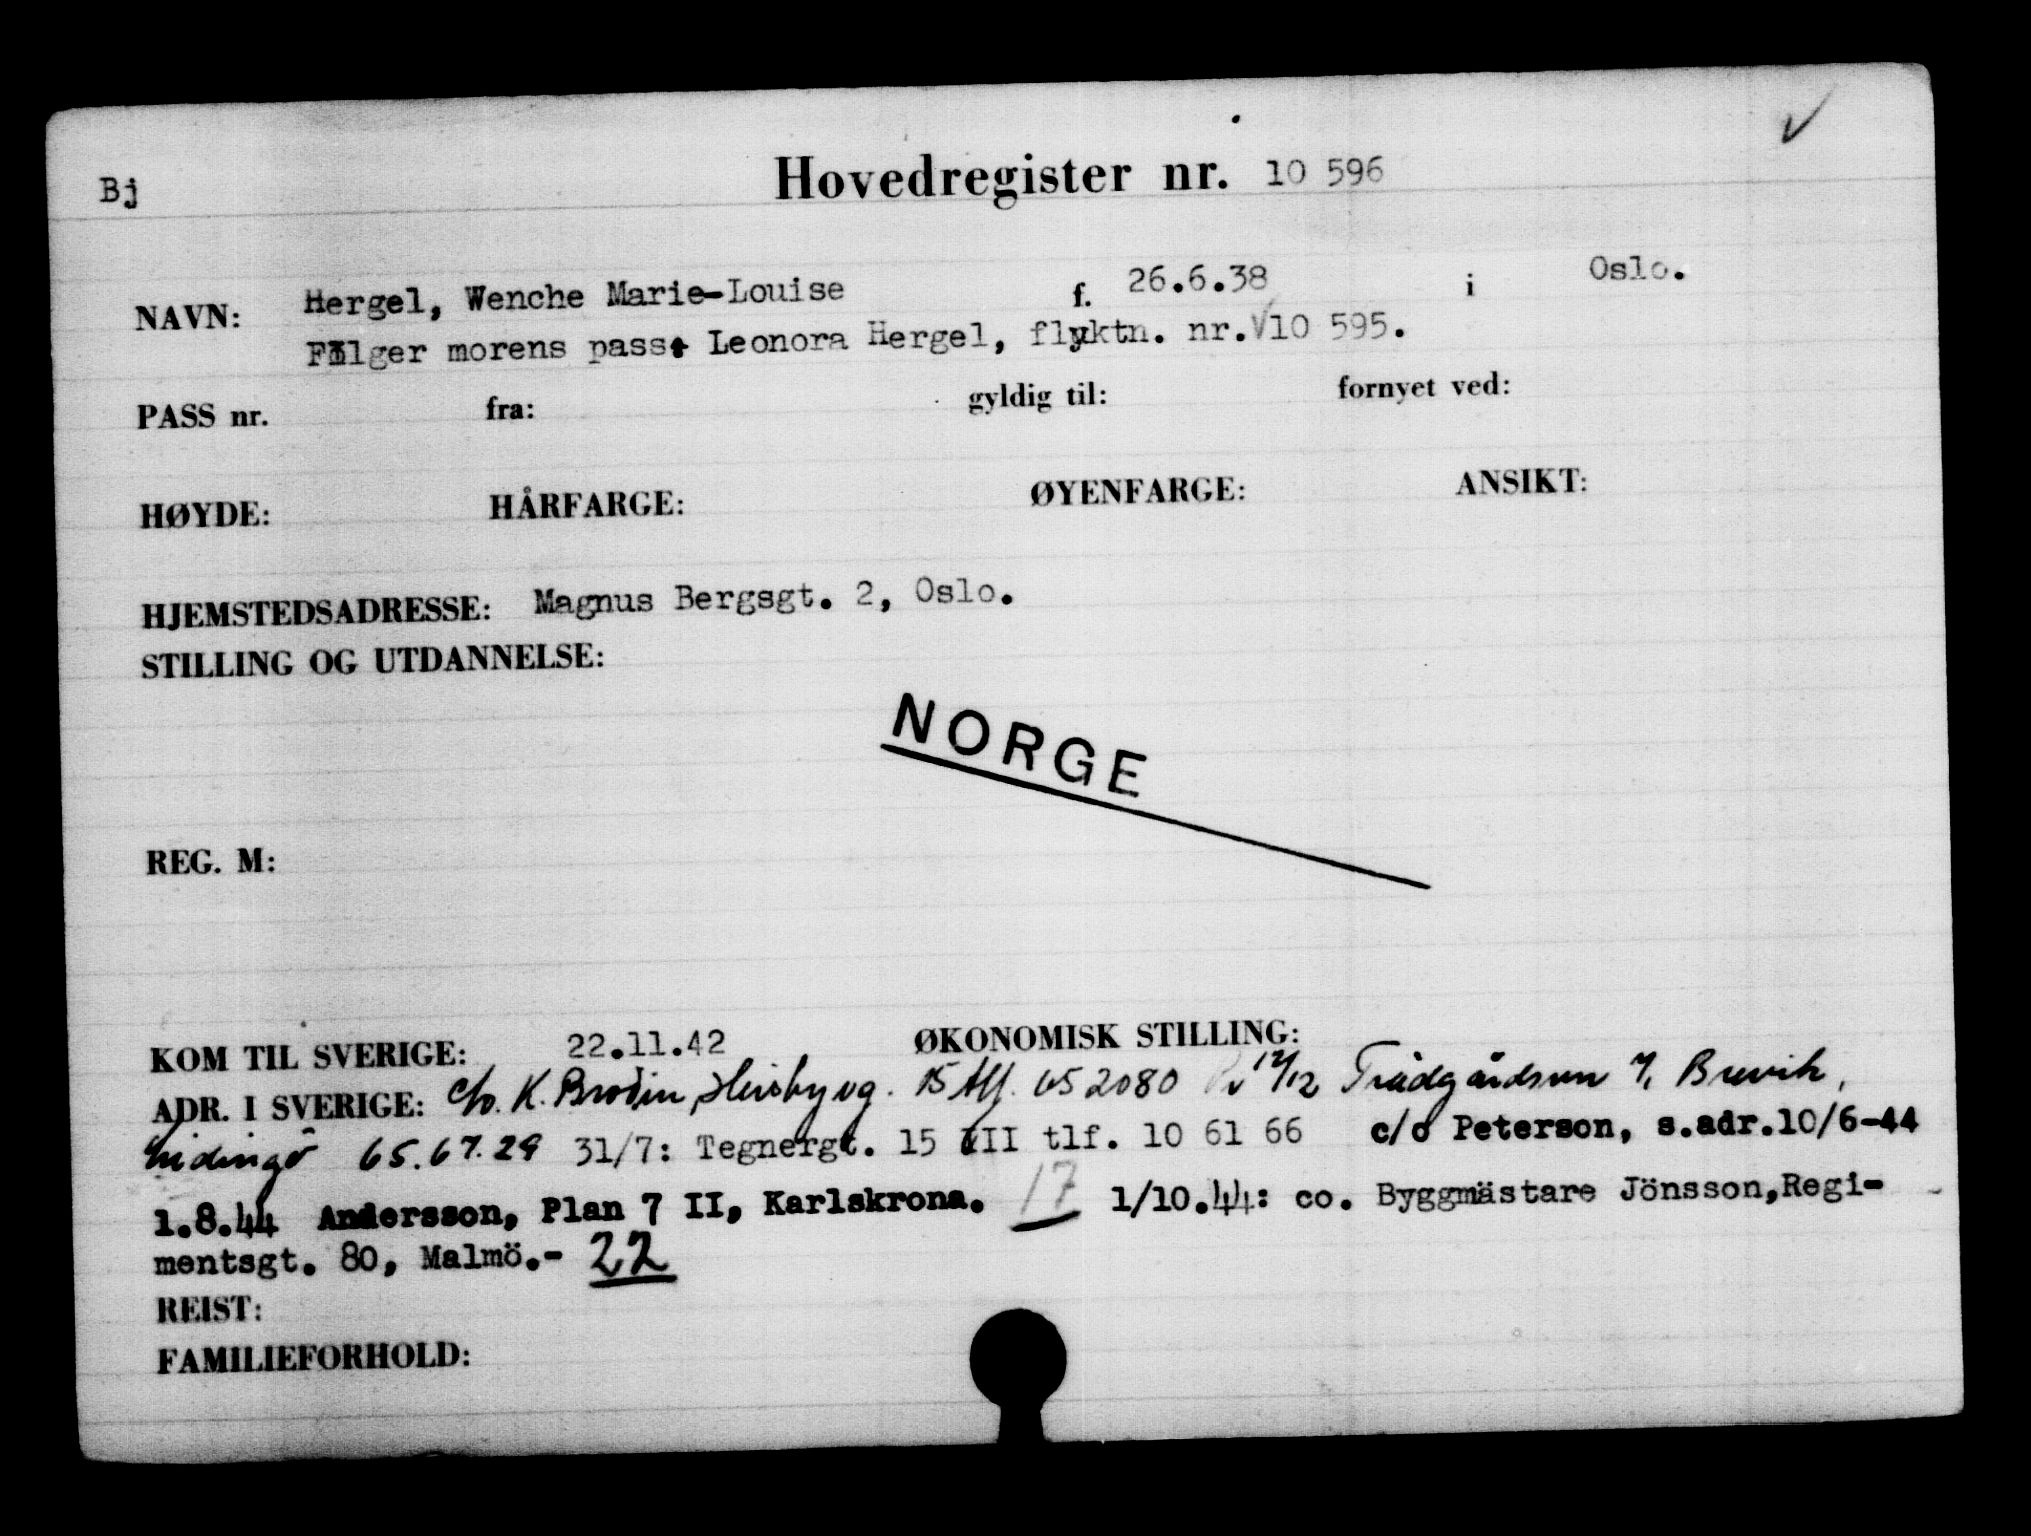 Bj
Hovedregister nr. 10 596
NAVN: Hergel, Wenche Marie-Louise f. 26.6.38 i Oslo.
Følger morens pass: Leonora Hergel, flyktn. nr. 10 595.
PASS nr. fra: gyldig til: fornyet ved:
HØYDE: HÅRFARGE: ØYENFARGE: ANSIKT:
HJEMSTEDSADRESSE: Magnus Bergsgt. 2, Oslo.
STILLING OG UTDANNELSE:
NORGE
REG. M:
KOM TIL SVERIGE: 22.11.42 ØKONOMISK STILLING:
ADR. I SVERIGE: c/o. K. Brodin, 15 65 2080 12/12 Brevik,
Lidingö 65.67.29 31/7: Tegnergt. 15 III tlf. 10 61 66 c/o Peterson, s.adr.10/6-44
1.8.44 Andersson, Plan 7 II, Karlskrona. 17 1/10.44: co. Byggmästare Jönsson,Regi-
mentsgt. 80, Malmö.- 22
REIST:
FAMILIEFORHOLD: